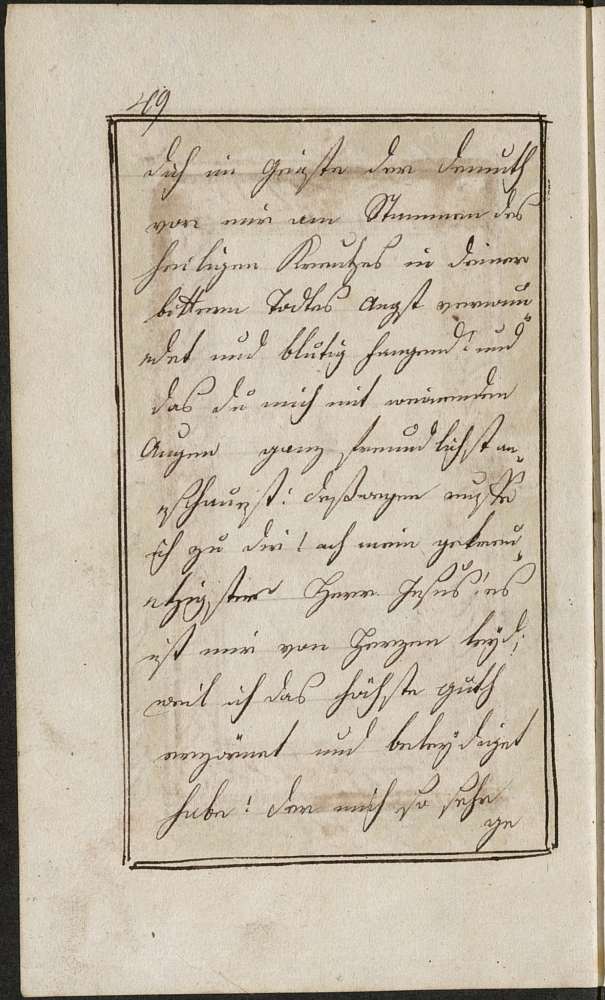 49
dich im Geiste der demuth
vor mir am Stammen des
heiligen Kreutzes in deiner
bittern Todtes Angst verwun„
det und blutig hangend! und
das du mich mit weinenden
Augen ganz freundlichst an„
schauest: deßwegen ruffe
ich zu dir! ach mein gekreu„
tzigster Herr Jesus! es
ist mir von Herzen leyd;
weil ich das höchste guth
erzörnet und beleydiget
habe! der mich so sehr
ge